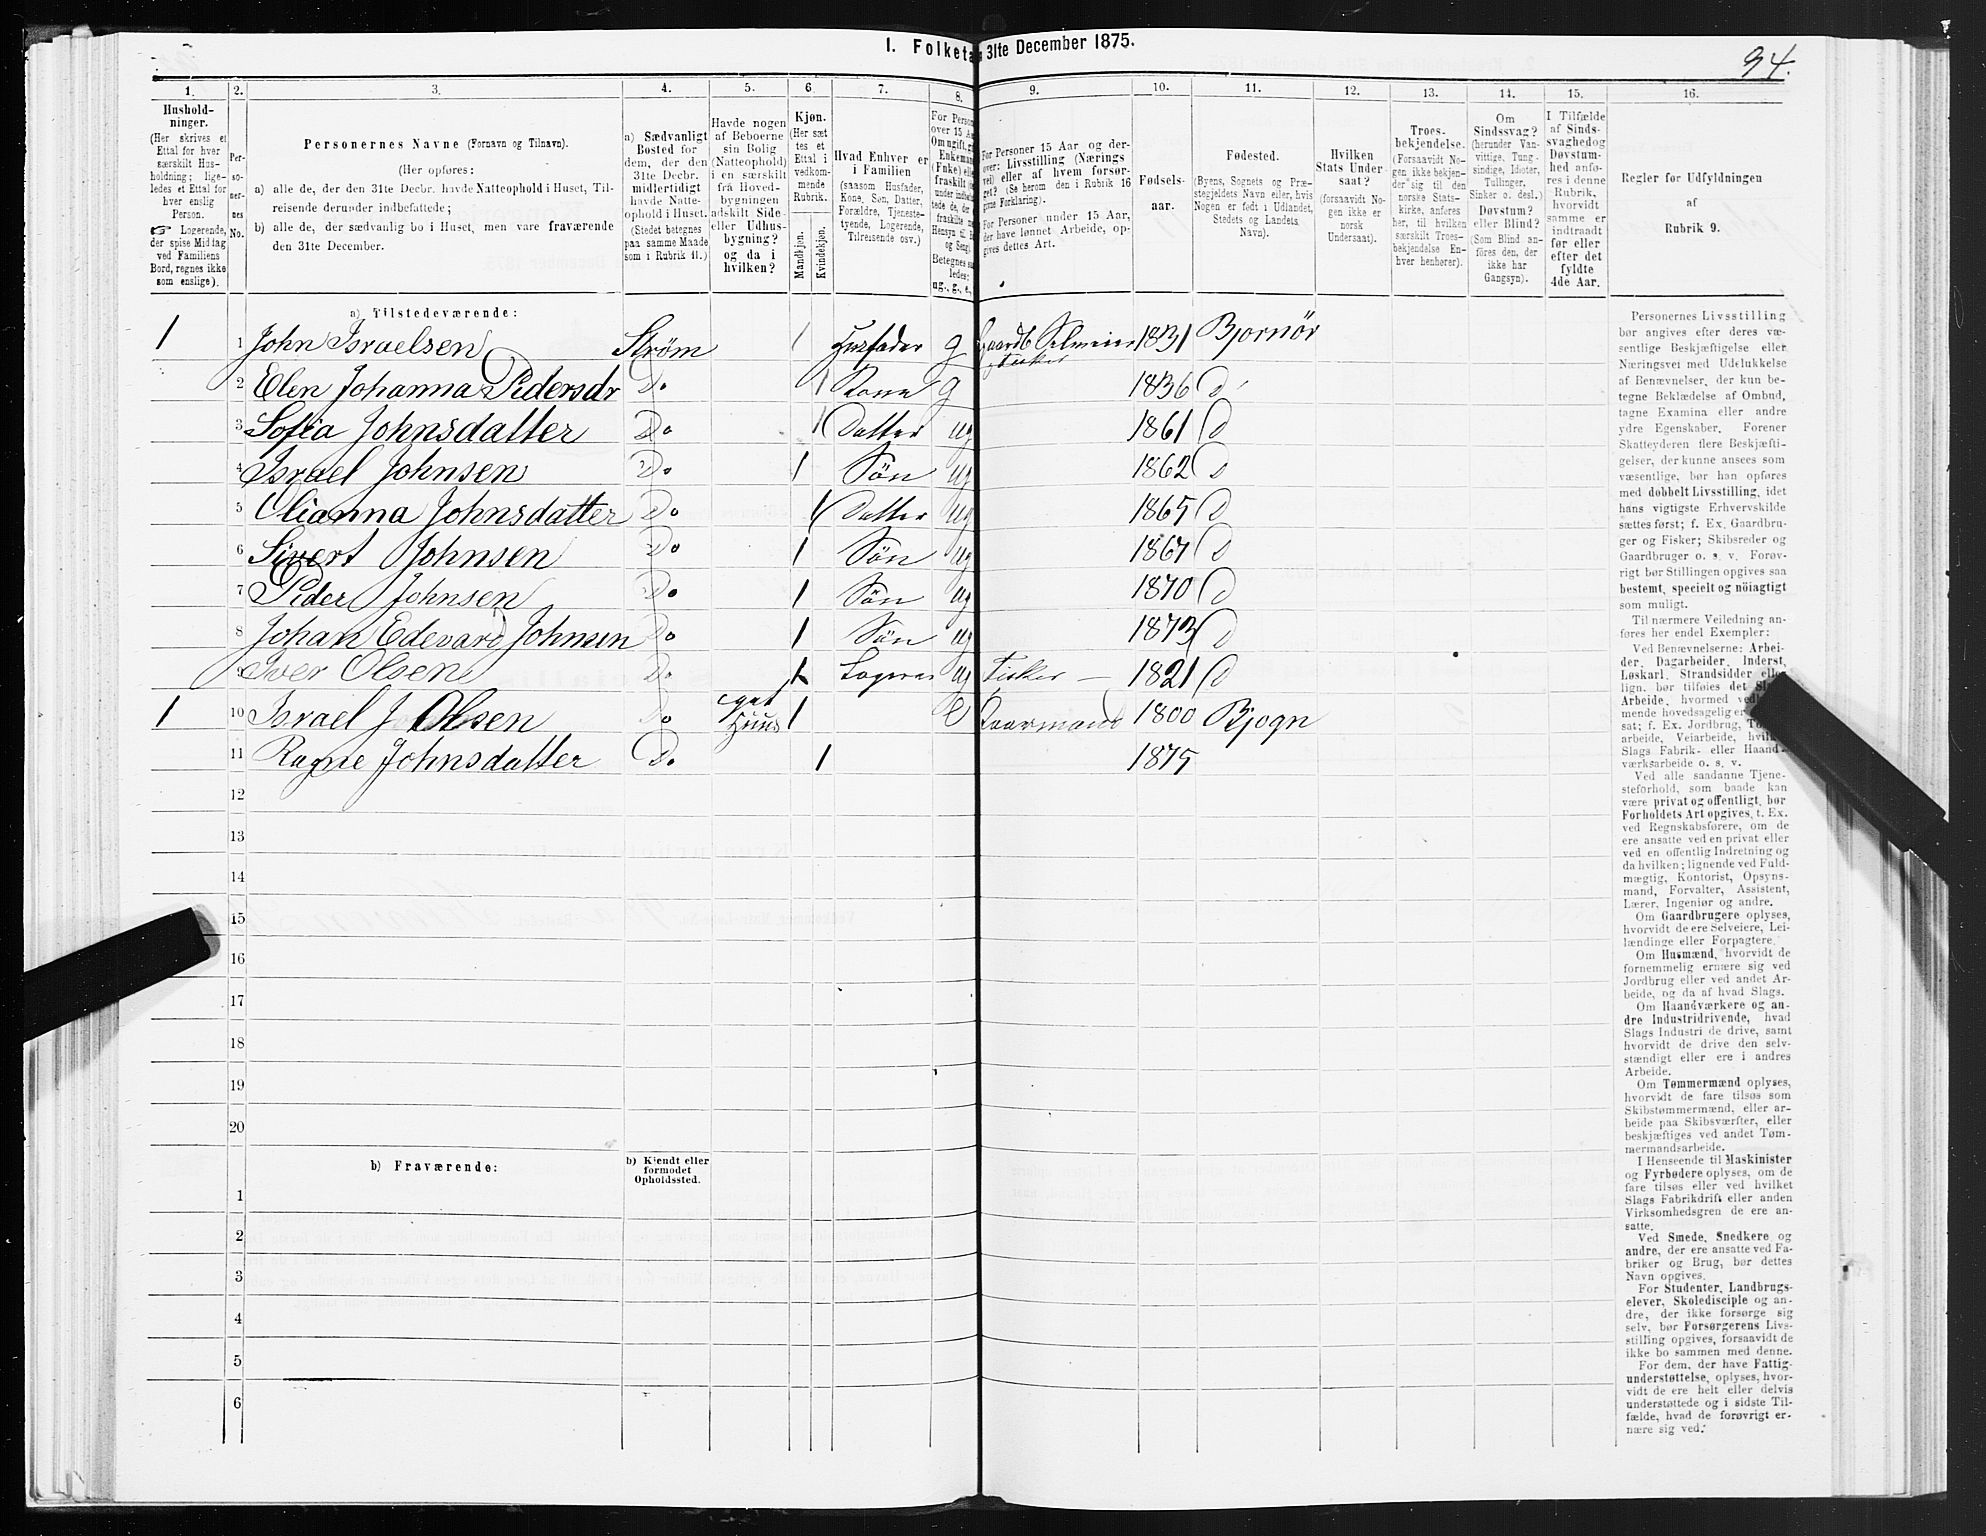 1. Folketæ 31te December 1875.
94.
1. 2. 3. 4. 5. 6. 7. 8. 9. 10. 11. 12. 13. 14. 15. 16.
Hushold-
ninger.
(Her skrives et
Ettal for hver
særskilt Hus-
holdning; lige-
ledes et Ettal for
hver enslig
Person.
☞ Logerende,
der spise Middag
ved Familiens
Bord, regnes ikke
som enslige).
Per-
so-
ner-
nes
No.
Personernes Navne (Fornavn og Tilnavn).
(Her opføres:
a) alle de, der den 31te Decbr. havde Natteophold i Huset, Til-
reisende derunder indbefattede;
b) alle de, der sædvanlig bo i Huset, men vare fraværende
den 31te December.
a) Sædvanligt
Bosted for
dem, der den
31te Decbr.
midlertidigt
havde Natte-
ophold i Huset.
(Stedet betegnes
paa samme Maade
som i Rubrik 11.)
Havde nogen
af Beboerne
sin Bolig
(Natteophold)
i en særskilt
fra Hoved-
bygningen
adskilt Side-
eller Udhus-
bygning?
og da i
hvilken?
Kjøn.
(Her sæt-
tes et
Ettal i
vedkom-
mende
Rubrik.
Mandkjøn.
Kvindekjøn.
Hvad Enhver er
i Familien
(saasom Husfader,
Kone, Søn, Datter,
Forældre, Tjeneste-
tyende, Logerende,
Tilreisende osv.)
For Person
over 15 Aa
Om ugift, gi
Enkeman
(Fnke) elle
fraskilt (
Betegnes saa
ledes:
ug., g., e.,
For Personer 15 Aar og der-
over: Livsstilling (Nærings-
vei) eller af hvem forsør-
get? (Se herom den i Rubrik 16
givne Forklaring).
For Personer under 15 Aar,
der have lønnet Arbeide, op-
gives dettes Art.
Fødsels-
aar.
Fødested.
(Byens, Sognets og Præ-
stegjeldets Navn eller, hvis
Nogen er født i Udlandet,
Stedets og Landets
Navn).
Hvilken
Stats Under-
saat?
(forsaavidt No-
gen ikke er
norsk
Undersaat).
Troes-
bekjendelse.
(Forsaavidt No-
gen ikke bekjen-
der sig til den
norske Stats-
kirke, anføres
her, til hvilken
særskilt Troes-
bekjendelse En-
hver henhører).
Om
Sindssvag?
(herunder Van-
vittige, Tung-
sindige, Idioter,
Tullinger,
Sinker o. desl.)
Døvstum?
eller Blind?
(Som Blind an-
føres den, der
ikke har
Gangsyn).
I Tilfælde
af Sinds-
svaghed og
Døvstum-
hed anfø-
res i denne
Rubrik,
hvorvidt
samme er
indtraadt
før eller
efter det
fyldte
4de Aar.
Regler for Udfyldningen
af
Rubrik 9.
a) Tilstedeværende:
1 1 John Israelsen Strøm 1 Husfader g Gaardb Selveier 1831 Bjornør
Fisker
2 Elen Johanna Pedersdr Do 1 Kone g 1836 D
3 Sofia Johnsdatter Do 1 Datter ug 1861 D
4 Israel Johnsen Do 1 Søn ug 1862 D
5 Olianna Johnsdatter Do 1 Datter ug 1865 D
6 Sivert Johnsen Do 1 Søn ug 1867 D
7 Peder Johnsen Do 1 Søn ug 1870 D
8 Johan Edevard Johnsen Do 1 Søn ug 1873 D
9 Iver Olsen Do 1 ug Fisker — 1821 D
1 10 Israel J Olsen Do eget Huus 1 e Kaarmand 1800 Bjogn
11 Ragne Johnsdatter Do 1 1875
12
13
14
15
16
17
18
19
20
b) Fraværende:
b) Kjendt eller
formodet
Opholdssted.
1
2
3
4
5
6
Personernes Livsstilling
bør angives efter deres væ-
sentlige Beskjæftigelse eller
Næringsvei med Udelukkelse
af Benævnelser, der kun be-
tegne Beklædelse af Ombud,
tagne Examina eller andre
ydre Egenskaber. Forener
Skatteyderen flere Beskjæfti-
gelser, der kunne ansees som
væsentlige, bør han opføres
med dobbelt Livsstilling, idet
hans vigtigste Erhvervskilde
sættes først; f. Ex. Gaardbru-
ger og Fisker; Skibsreder og
Gaardbruger o. s. v. Forøv-
rigt bør Stillingen opgives saa
bestemt, specielt og nöiagtigt
som muligt.
Til nærmere Veiledning an-
føres her endel Exempler:
Ved Benævnelserne: Arbei-
der, Dagarbeider, Inderst,
Løskarl, Strandsidder eller
lign. bør tilføies det Slags
Arbeide, hvormed ved
mende hovedsagelig er
sat; f. Ex. Jordbrug, To
arbeide, Veiarbeide, hvil
Slags Fabrik- eller Haand-
værksarbeide o. s. v.
Ved alle saadanne Tjene-
steforhold, som baade kan
være privat og offentligt, bør
Forholdets Art opgives, t. Ex.
ved Regnskabsførere, om de
ere ansatte ved en privat eller
ved en offentlig Indretning og
da hvilken; lignende ved Fuld-
mægtig, Kontorist, Opsyns-
mand, Forvalter, Assistent,
Lærer, Ingeniør og andre.
Om Gaardbrugere oplyses,
hvorvidt de ere Selveiere, Lei-
lændinge eller Forpagtere.
Om Husmænd, hvorvidt de
fornemmelig ernære sig ved
Jordbrug eller ved andet Ar-
beide, og da af hvad Slags.
Om Haandværkere og an-
dre Industridrivende, hvad
Slags Industri de drive, samt
hvorvidt de drive den selv-
stændigt eller ere i andres
Arbeide.
Om Tømmermænd oplyses,
hvorvidt de fare tilsøs som
Skibstømmermænd, eller ar-
beide paa Skibsværfter, eller
beskjæftiges ved andet Tøm-
mermandsarbeide.
I Henseende til Maskinister
og Fyrbødere oplyses, om de
fare tilsøs eller ved hvilket
Slags Fabrikdrift eller anden
Virksomhedsgren de ere an-
satte.
Ved Smede, Snedkere og
andre, der ere ansatte ved Fa-
briker og Brug, bør dettes
Navn opgives.
For Studenter, Landbrugs-
elever, Skoledisciple og an-
dre, der ikke forsørge sig
selv, bør Forsørgerens Livs-
stilling opgives, forsaavidt de
ikke bo sammen med denne.
For dem, der have Fattig-
understøttelse, oplyses, hvor-
vidt de ere helt eller delvis
understøttede og i sidste Til-
fælde, hvad de forøvrigt er-
nære sig ved.